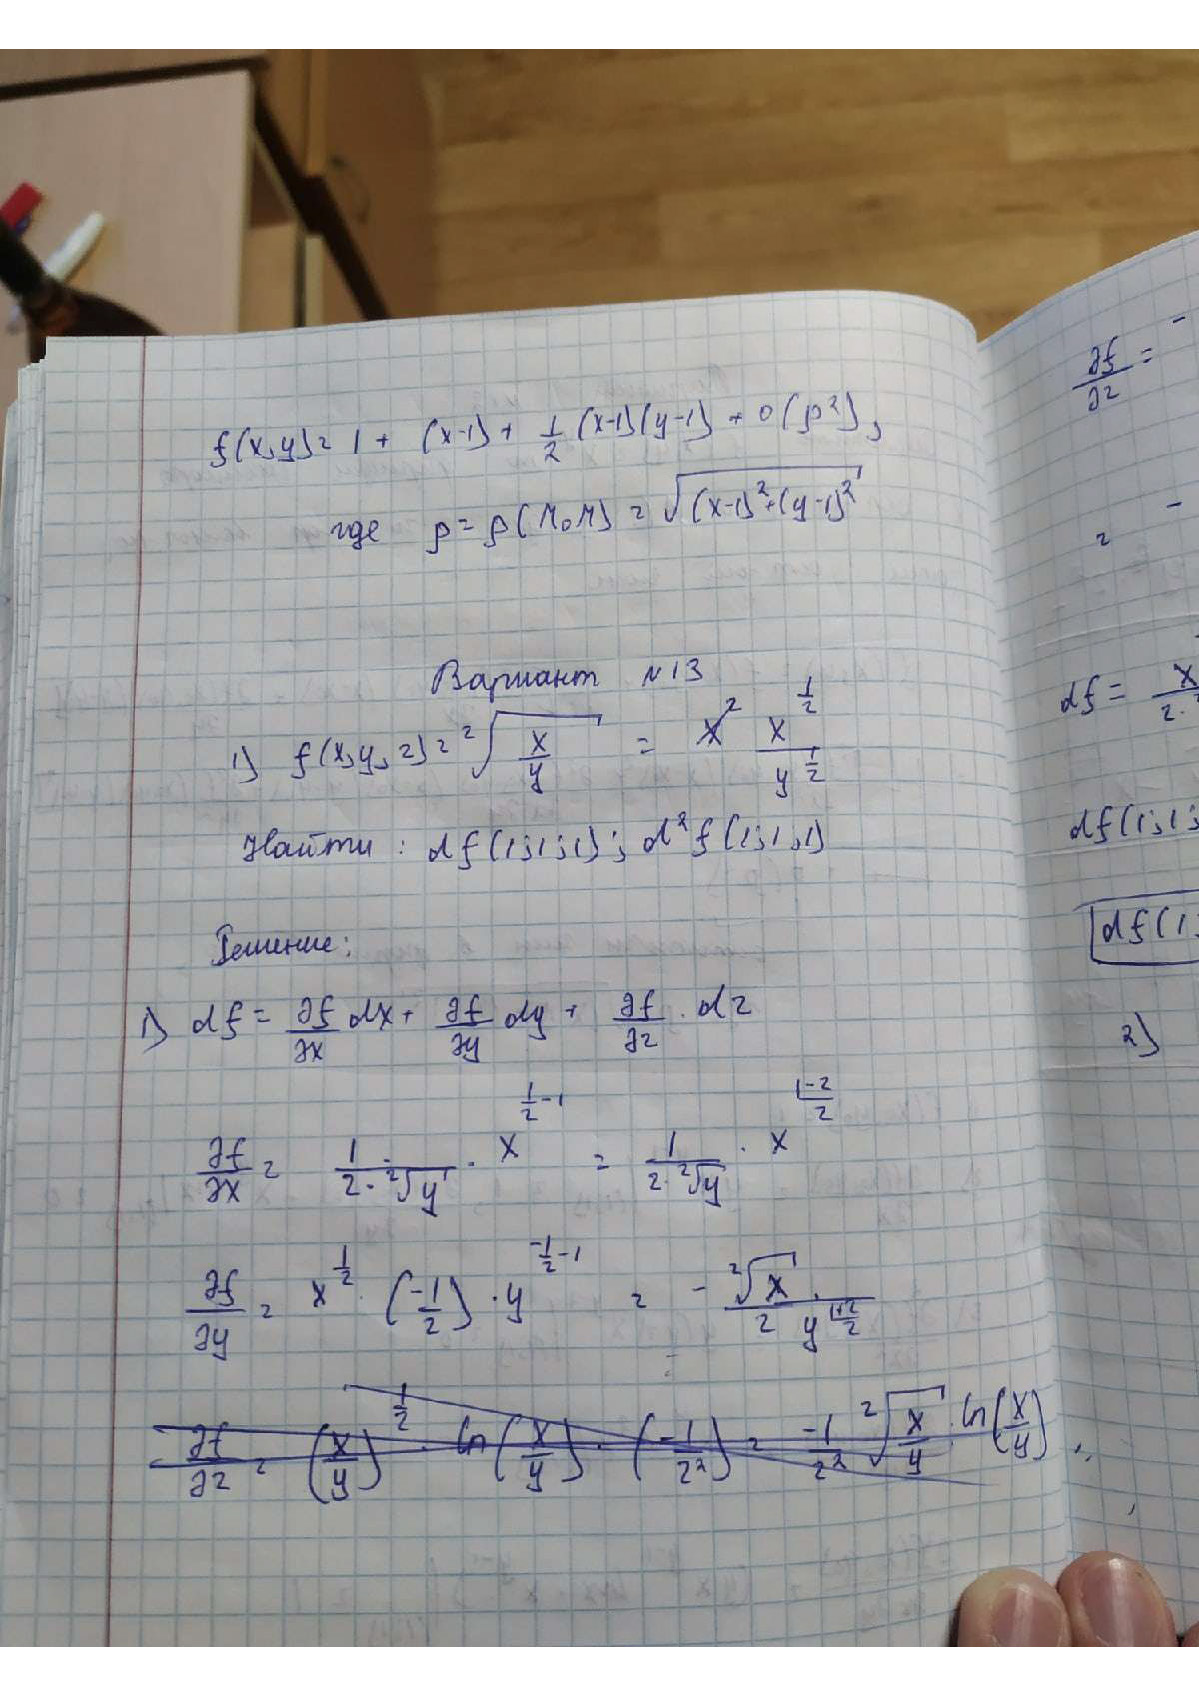 f(x,y)= 1 + (x-1) + 1/2 (x-1)(y-1) + o(ρ²),
где ρ = ρ(M₀M) = √((x-1)²+(y-1)²)
Вариант №13
1) f(x,y,z) = ᶻ√(x/y) = x^(1/z) / y^(1/z)
Найти: df(1;1;1); d²f(1;1,1)
Решение:
1) df = ∂f/∂x dx + ∂f/∂y dy + ∂f/∂z · dz
∂f/∂x = 1/(z·ᶻ√y) · x^(1/z -1) = 1/(z·ᶻ√y) · x^((1-z)/z)
∂f/∂y = x^(1/z) · (-1/z) · y^(-1/z -1) = - ᶻ√x / (z y^((1+z)/z))
∂f/∂z = (x/y)^(1/z) · ln(x/y) · (-1/z²) = -1/z² ᶻ√(x/y) · ln(x/y),
∂f/∂z = -
= -
df = x
df(1;1;
df(1;
2)